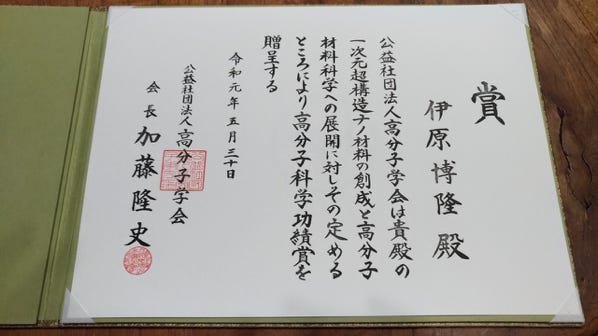 賞
伊原博隆殿
公益社団法人高分子学会は貴殿の
一次元超構造ナノ材料の創成と高分子
材料科学への展開に対しその定める
ところにより高分子科学功績賞を
贈呈する
令和元年五月三十日
公益社団法人高分子学会
会長加藤隆史